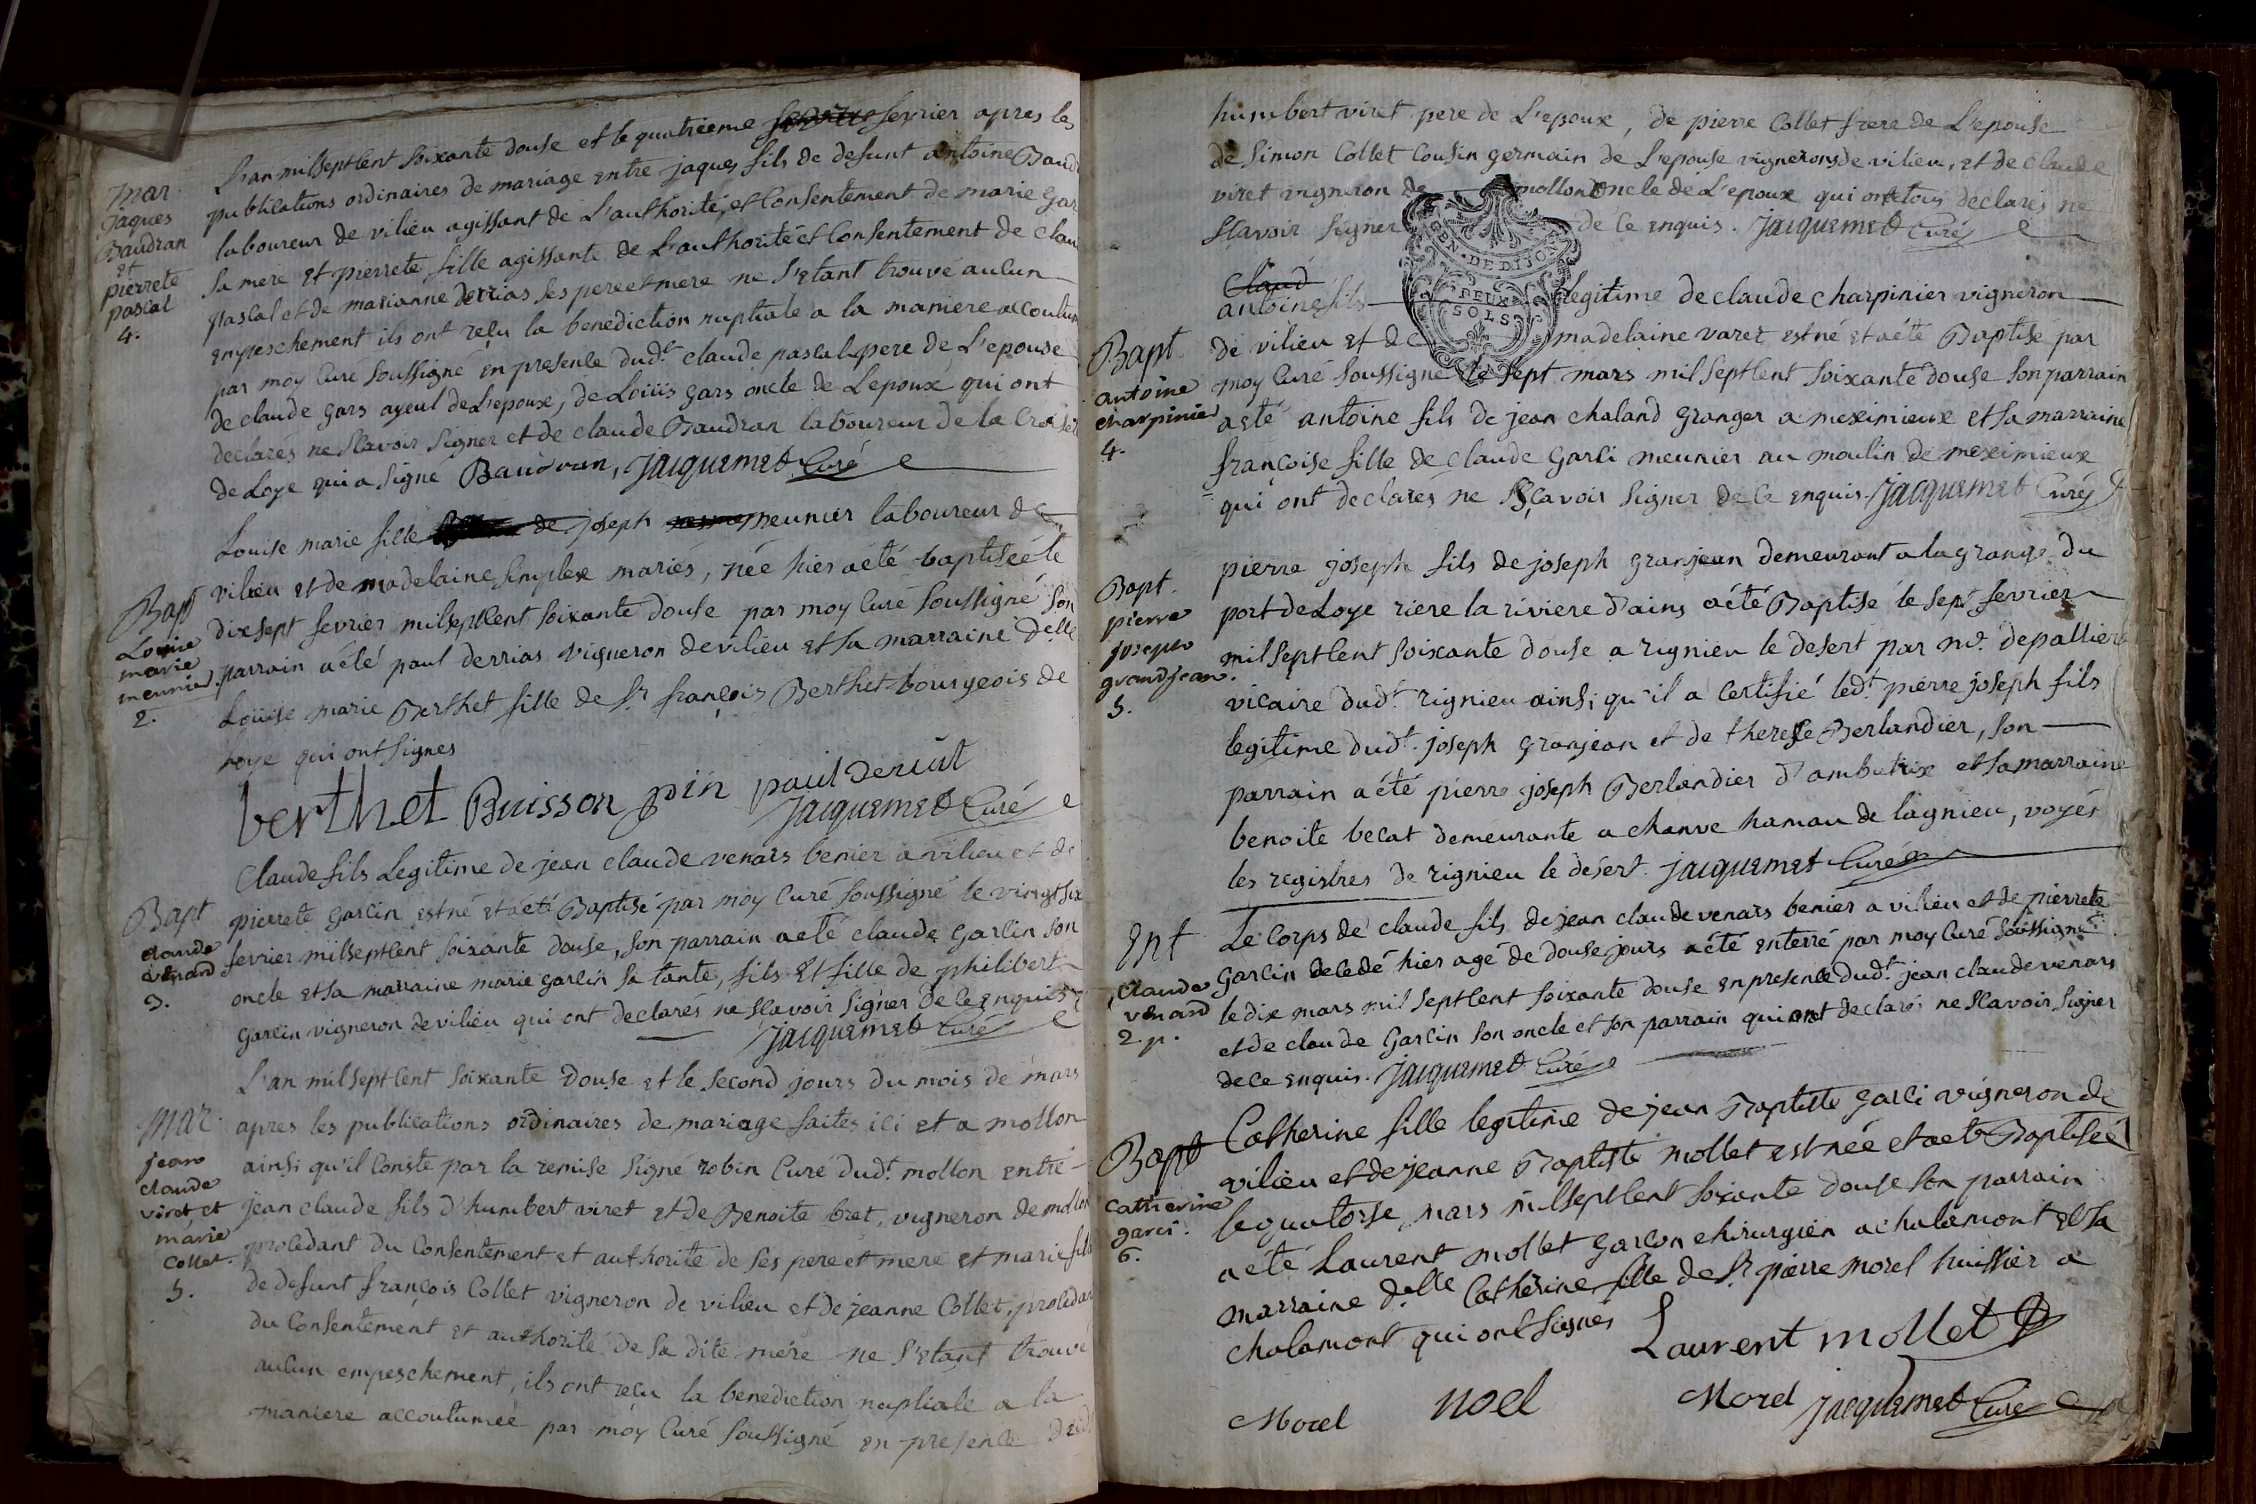 Mar
jaques
Baudran
et
pierrete
pascal
4.
L'an mil sept cent soixante douse et le quatrieme fevrier apres les
publications ordinaires de mariage entre jaques fils de defunt antoine Baud
laboureur de vilieu agissant de l'authorité, et consentement de marie gar
sa mere et pierrete fille agissante de l'authorité et consentement de clau
pascal et de marianne derrias ses pere et mere ne s'etant trouvé aucun
empeschement ils ont reçu la benediction nuptiale a la maniere accoutum
par moy curé soussigné en presence dud.t claude pascal pere de l'epouse
de claude gars ayeul de l'epoux, de Loüis gars oncle de l'epoux qui ont
declarés ne sçavoir signer et de claude Baudran laboureur de la
de Loye qui a signé Baudran, Jacquemet Curé
Bapt
Louise
marie
meunier.
2.
Louise marie fille de joseph meunier laboureur de
vilieu et de madelaine simplex mariés, née hier a été baptisée le
dixsept fevrier mil sept cent soixante douse par moy curé soussigné son
parrain a été paul derrias vigneron de vilieu et sa marraine delle
Loüise marie Berthet fille de Sr françois Berthet bourgeois de
Loye qui ont signes
berthet Buisson pin paul
Jacquemet Curé
Bapt
claude
venard
3.
Claude fils legitime de jean claude venars benier a vilieu et de
pierrete garcin est né et a été Baptisé par moy curé soussigné le vingt six
fevrier mil sept cent soixante douse, son parrain a eté claude garcin son
oncle et sa marraine marie garcin sa tante, fils et fille de philibert
garcin vigneron de vilieu qui ont declarés ne sçavoir signer de ce enquis
Jacquemet Curé
Mar
jean
claude
viret et
marie
collet.
5.
L'an mil sept cent soixante douse et le second jours du mois de mars
apres les publications ordinaires de mariage faites ici et a mollon
ainsi qu'il conste par la remise signé robin curé dud.t mollon entre
jean claude fils d'humbert viret et de Benoite bret, vigneron de mollon
procedant du consentement et authorité de ses pere et mere et marie fille
de defunt françois Collet vigneron de vilieu et de jeanne Collet, procedan
du consentement et authorité de sa dite mére ne s'etant trouvé
aucun empeschement, ils ont reçu la benediction nuptiale a la
maniere accoutumée par moy curé soussigné en presence dud
humbert viret pere de l'epoux, de pierre Collet frere de l'epouse
de simon Collet cousin germain de l'epouse vignerons de vilieu, et de claude
viret vigneron de mollon oncle de l'epoux qui ont tous declarés ne
sçavoir signer de ce enquis. Jacquemet Curé
GEN. DE DIJON
DEUX
SOLS
Bapt
antoine
charpinier
4.
Claud
antoine fils legitime de claude charpinier vigneron
de vilieu et de madelaine varer est né et a été Baptisé par
moy curé soussigné le sept mars mil sept cent soixante douse son parrain
a eté antoine fils de jean chaland granger a meximieux et sa marraine
françoise fille de claude garci meunier au moulin de meximieux
qui ont declarés ne sçavoir signer de ce enquis. Jacquemet Curé
Bapt.
pierre
joseph
grandjean.
5.
pierre joseph fils de joseph granjean demeurant a la grange du
port de Loye riere la riviere d'ains a été Baptisé le sept fevrier
mil sept cent soixante douse a rignieu le desert par mr. depalliere
vicaire dud.t rignieu ainsi qu'il a certifié led.t pierre joseph fils
legitime dud.t joseph granjean et de therese Berlandier, son
parrain a été pierre joseph Berlandier d'ambutrix et sa marraine
benoite becat demeurante a chanve hamau de lagnieu, voyés
les registres de rignieu le désert. Jacquemet Curé
Int
claude
venard
2. p.
Le corps de claude fils de jean claude venars benier a vilieu et de pierrete
garcin decedé hier agé de douse jours a été enterré par moy curé soussigné
le dix mars mil sept cent soixante douse en presence dud.t jean claude venars
et de claude garcin son oncle et son parrain qui ont declarés ne sçavoir signer
de ce enquis. Jacquemet Curé
Bapt
catherine
garci.
6.
Catherine fille legitime de jean Baptiste garci vigneron de
vilieu et de jeanne Baptiste mollet est née et a eté Baptisée
le quatorse mars mil sept cent soixante douse son parrain
a été Laurent mollet garçon chirurgien a chalamont et sa
marraine delle Catherine fille de Sr pierre morel huissier a
chalamont qui ont signés
Laurent mollet
Morel noel Morel Jacquemet Curé